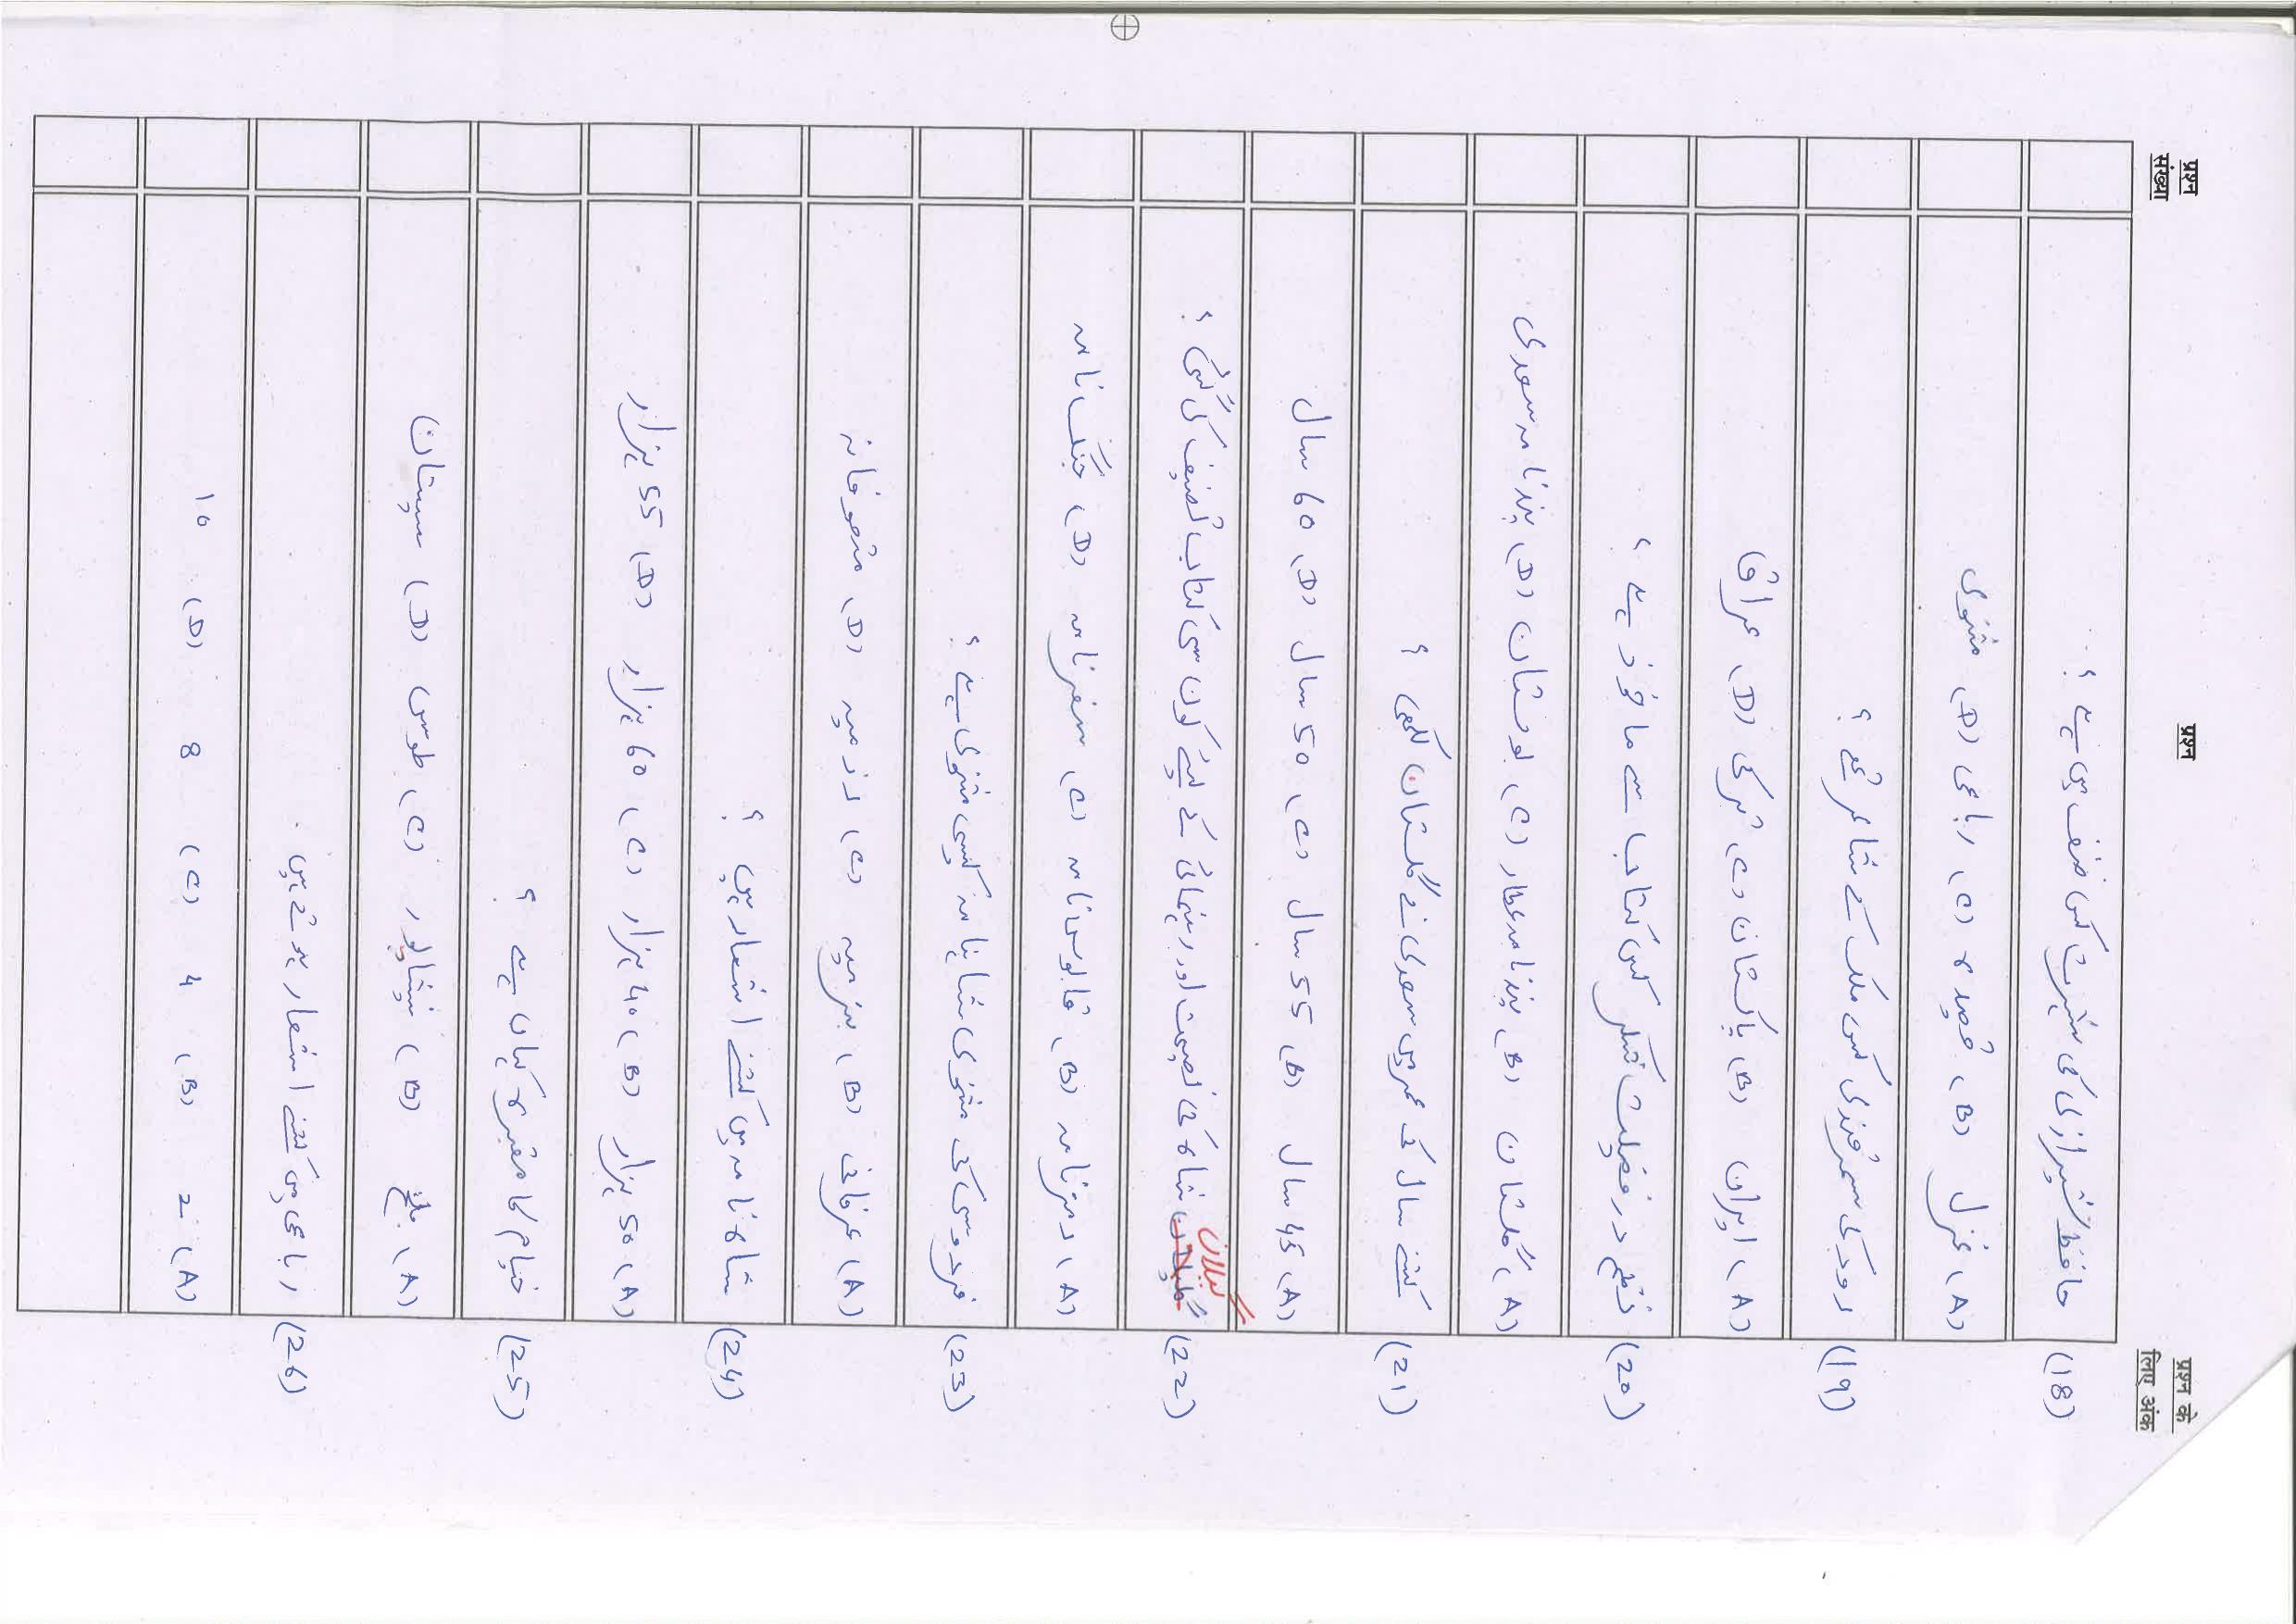 प्रश्न संख्या
प्रश्न
प्रश्न के लिए अंक
(18) حافظ شیرازی کی شہرت کس صنف میں ہے ؟
(A) غزل (B) قصیدہ (C) رباعی (D) مثنوی
(19) رودکی سمرقندی کس ملک کے شاعر تھے ؟
(A) ایران (B) پاکستان (C) ترکی (D) عراق
(20) نظم در فضیلت شکر کس کتاب سے ماخوذ ہے ؟
(A) گلستان (B) پندنامہ عطار (C) بوستان (D) پندنامہ سعدی
(21) کتنے سال کی عمر میں سعدی نے گلستان لکھی ؟
(A) 45 سال (B) 55 سال (C) 50 سال (D) 60 سال
(22) گیلان شاہ کی نصیحت اور رہنمائی کے لیئے کون سی کتاب تصنیف کی گئی ؟
(A) رمزنامہ (B) قابوس نامہ (C) سفرنامہ (D) جنگ نامہ
(23) فردوسی کی مثنوی شاہنامہ کیسی مثنوی ہے ؟
(A) عرفانی (B) بزمیہ (C) رزمیہ (D) متصوفانہ
(24) شاہ نامہ میں کتنے اشعار ہیں ؟
(A) 50 ہزار (B) 40 ہزار (C) 60 ہزار (D) 55 ہزار
(25) خیام کا مقبرہ کہاں ہے ؟
(A) بلخ (B) نیشاپور (C) طوس (D) سیستان
(26) رباعی میں کتنے اشعار ہوتے ہیں ۔
(A) 2 (B) 4 (C) 8 (D) 10